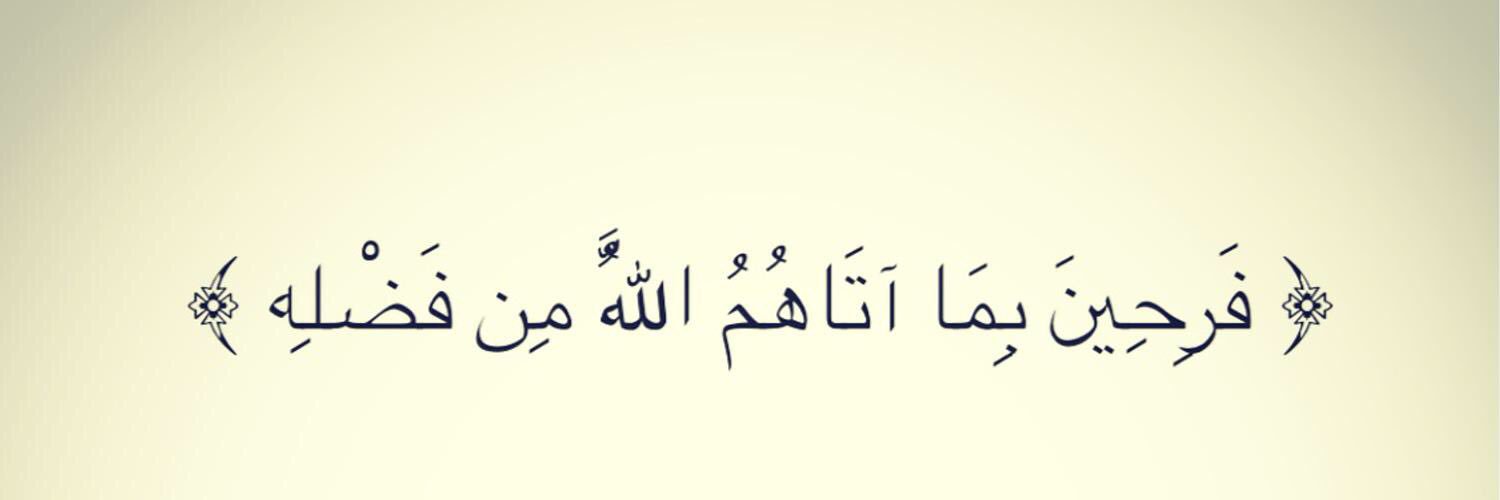 ﴿ فَرِحِينَ بِمَا آتَاهُمُ اللَّهُ مِن فَضْلِهِ ﴾